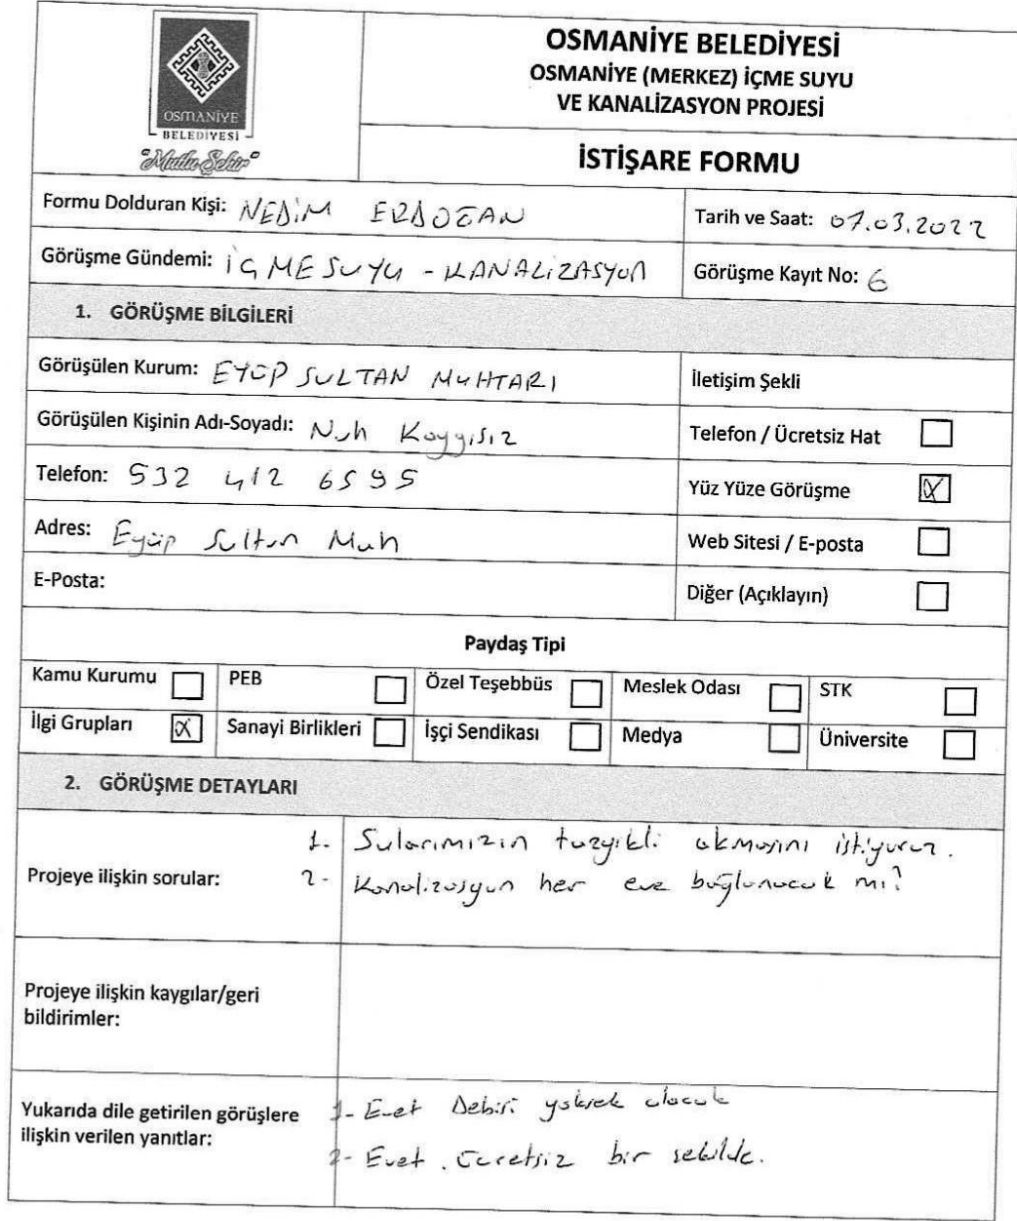 OSMANİYE
BELEDİYESİ
"Mutlu Şehir"
OSMANİYE BELEDİYESİ
OSMANİYE (MERKEZ) İÇME SUYU
VE KANALİZASYON PROJESİ
İSTİŞARE FORMU
Formu Dolduran Kişi: NEDİM ERDOĞAN
Tarih ve Saat: 07.03.2022
Görüşme Gündemi: İÇME SUYU - KANALİZASYON
Görüşme Kayıt No: 6
1. GÖRÜŞME BİLGİLERİ
Görüşülen Kurum: EYÜP SULTAN MUHTARI
İletişim Şekli
Görüşülen Kişinin Adı-Soyadı: Nuh Kaygısız
Telefon / Ücretsiz Hat
Telefon: 532 412 6595
Yüz Yüze Görüşme
Adres: Eyüp Sultan Mah
Web Sitesi / E-posta
E-Posta:
Diğer (Açıklayın)
Paydaş Tipi
Kamu Kurumu PEB Özel Teşebbüs Meslek Odası STK
İlgi Grupları Sanayi Birlikleri İşçi Sendikası Medya Üniversite
2. GÖRÜŞME DETAYLARI
Projeye ilişkin sorular:
1- Sularımızın tazyikli akmasını istiyoruz.
2- Kanalizasyon her eve bağlanacak mı?
Projeye ilişkin kaygılar/geri
bildirimler:
Yukarıda dile getirilen görüşlere
ilişkin verilen yanıtlar:
1- Evet Debisi yüksek olacak
2- Evet. Ücretsiz bir şekilde.